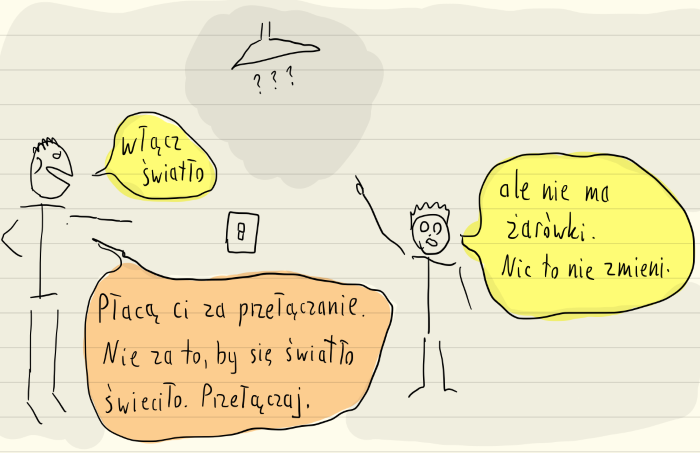 ? ? ?
włącz
światło
ale nie ma
żarówki.
Nic to nie zmieni.
Płacą ci za przełączanie.
Nie za to, by się światło
świeciło. Przełączaj.